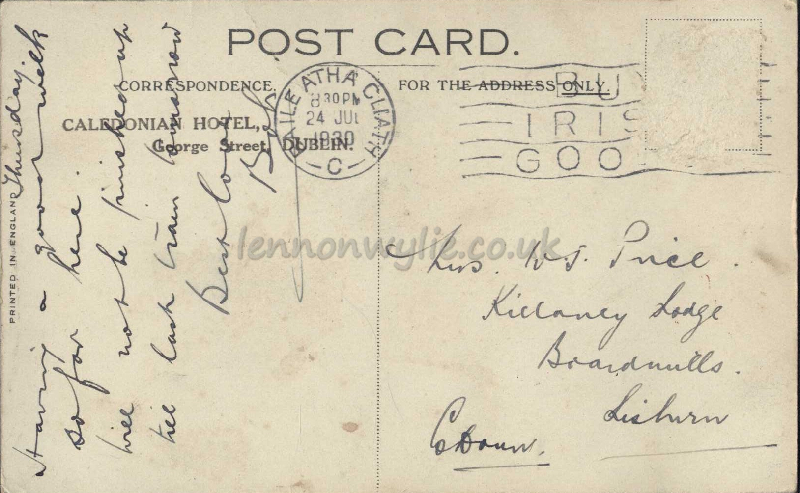 POST CARD.
CORRESPONDENCE.
FOR THE ADDRESS ONLY.
CALEDONIAN HOTEL,
George Street, DUBLIN.
BAILE ATHA CLIATH
8 30 PM
24 JUL
1930
C
BU
IRIS
GOO
PRINTED IN ENGLAND
Thursday
Having a good week
so far here.
will not be finished up
till last train tomorrow
Best love
Bob.
Mrs. W. J. Price.
Killaney Lodge
Boardmills.
Lisburn
Co Down.
lennonwylie.co.uk